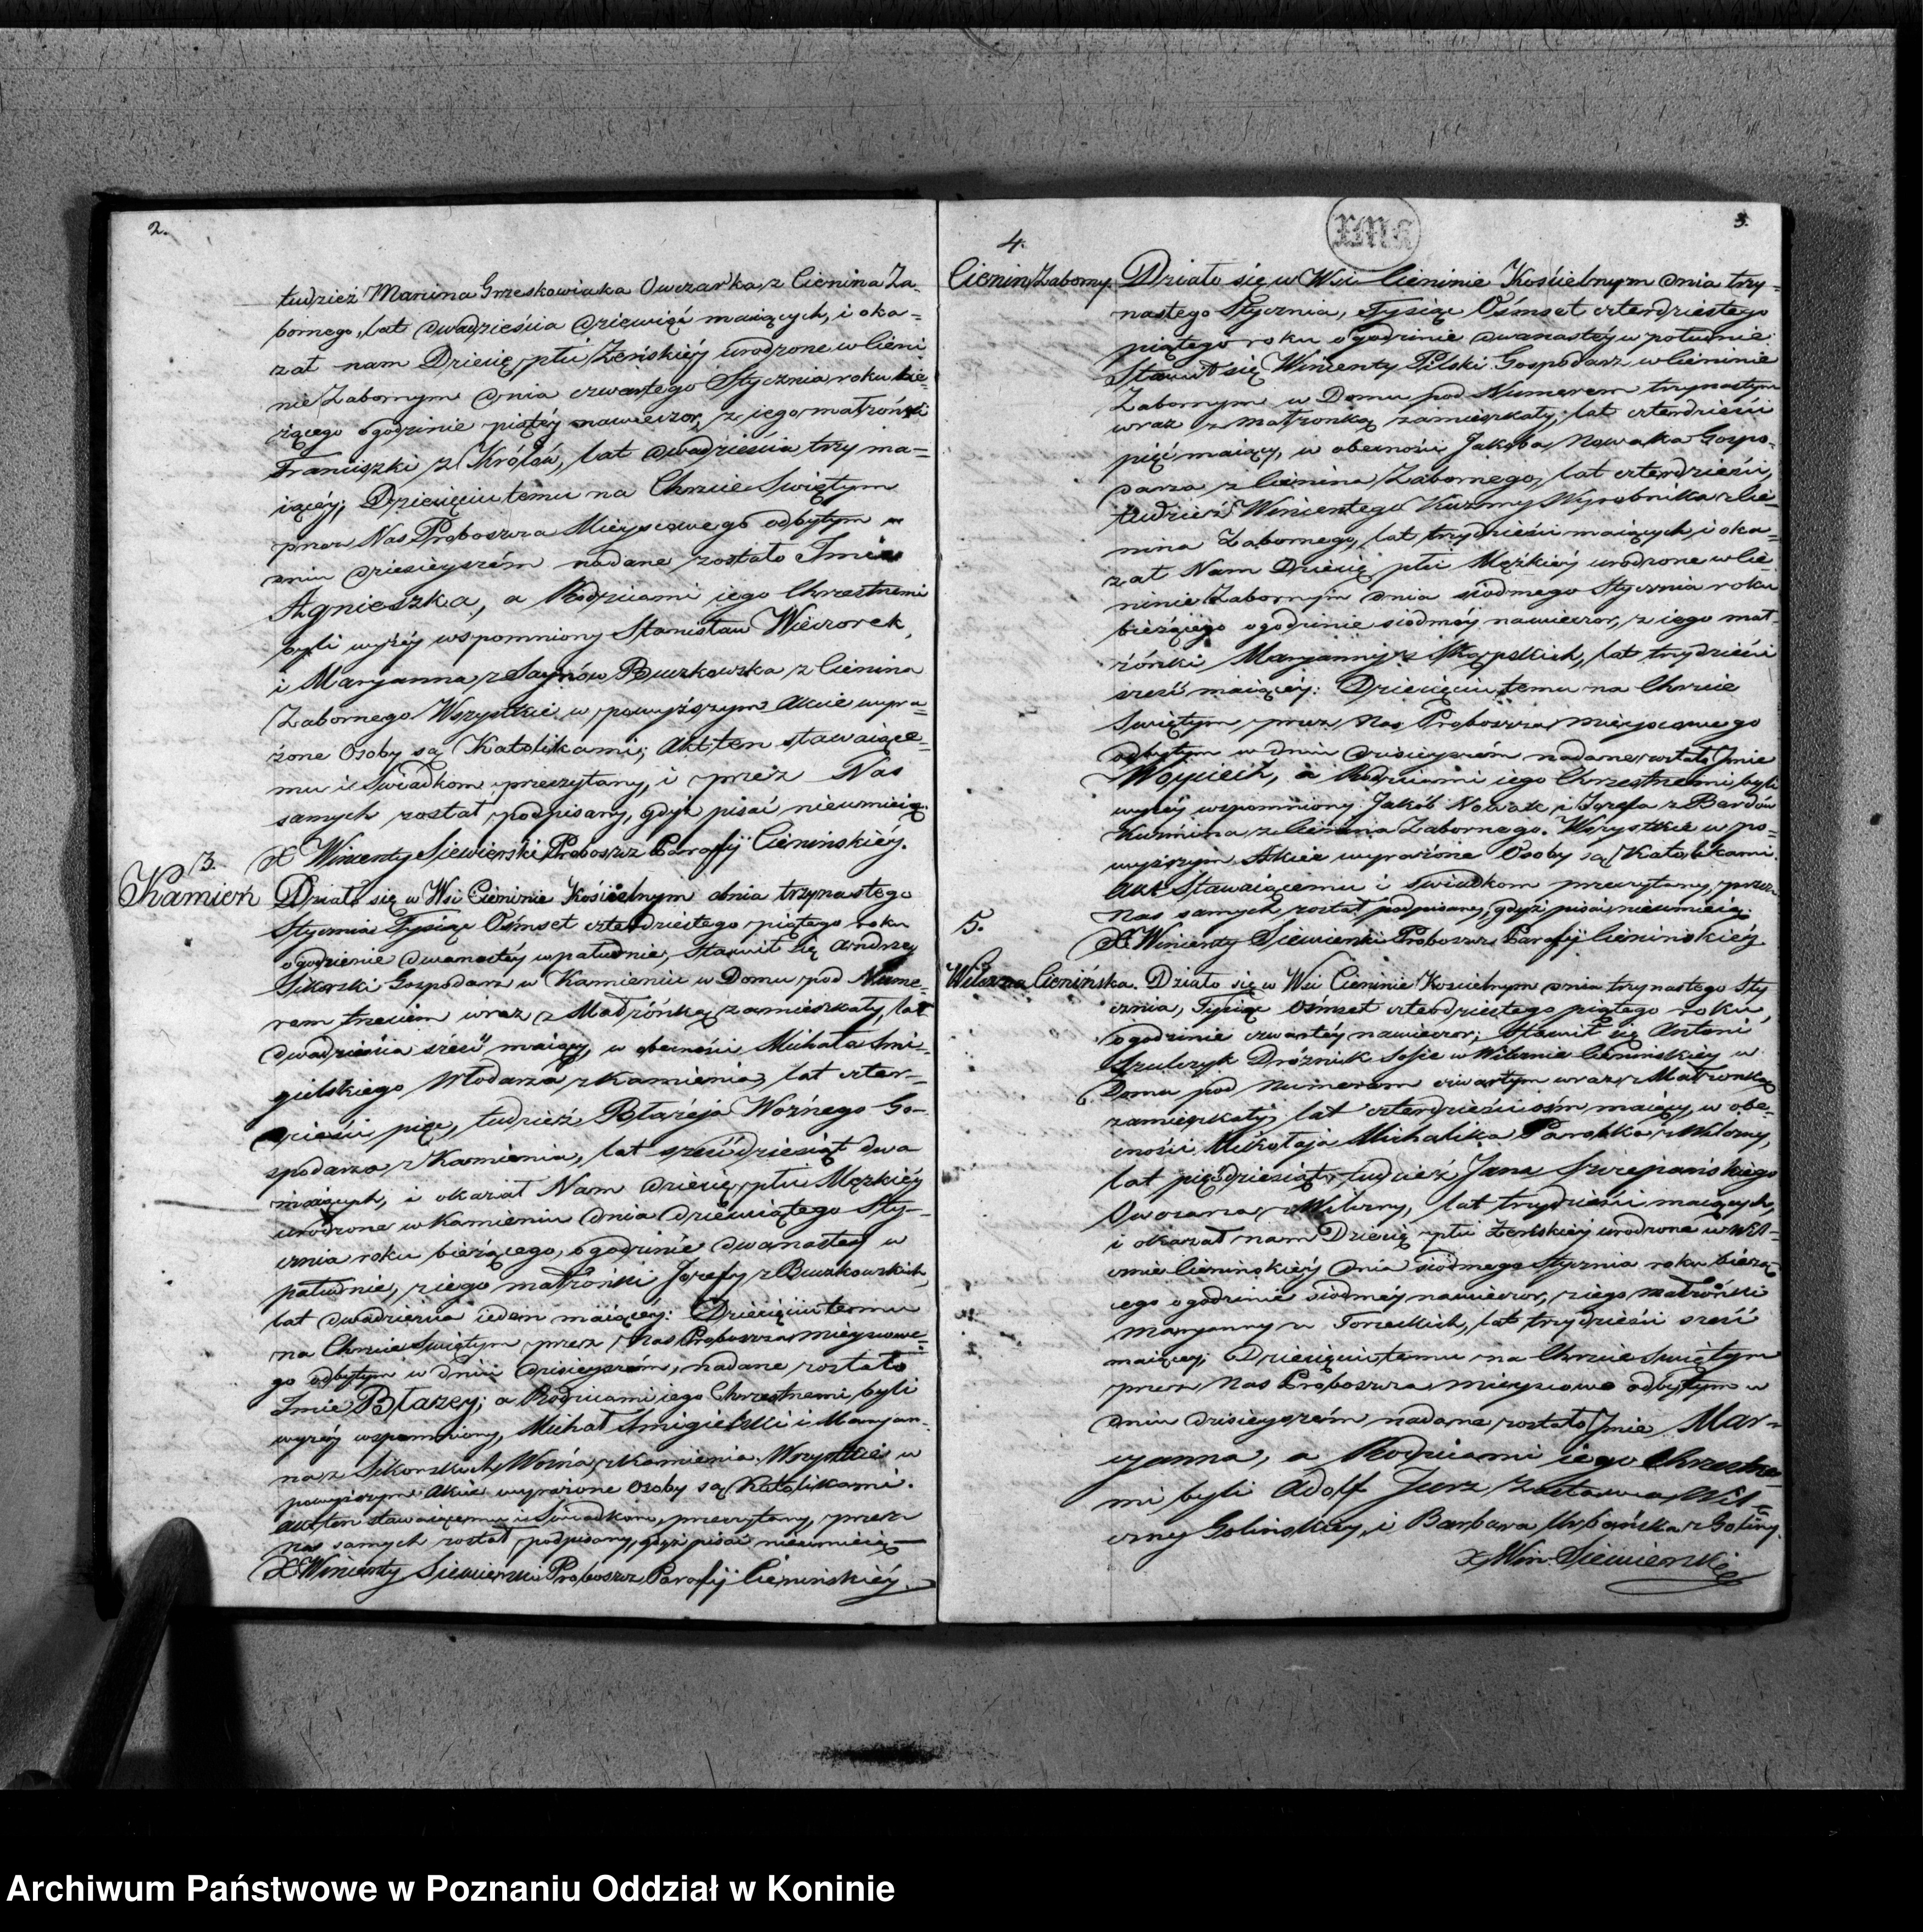 2.
tudzież Marcina Grzeskowiaka Owczarka, z Cienina Za
bornego, lat dwadzieścia dziewięć maiących, i oka=
zał nam Dziecię płci Żeńskiéj urodzone w Cieni
nie Zabornym dnia czwartego Stycznia roku bie=
żącego o godzinie piątéj nawieczor, z jego małżonki
Franciszki z Królów, lat dwadzieścia trzy ma=
iącéj; Dziecięciu temu na Chrzcie Swiętym
przez Nas Proboszcza Mieyscowego odbytym w
dniu dzisieyszém nadane zostało Imie
Agnieszka, a Rodzicami jego Chrzestnemi
byli wyżéj wspomniony Stanisław Wieczorek,
i Maryanna z Buczkowska z Cienina
Zabornego Wszystkie w powyższym Akcie wyra=
żone Osoby są Katolikami; Akt ten stawaiące=
mu i Swiadkom przeczytany, i przez Nas
samych został podpisany, gdyż pisać nieumieią.
X Wincenty Siewierski Proboszcz Parafÿ Cienińskiéy.
3.
Kamień
Działo się w Wsi Cieninie Kościelnym dnia trzynastego
Stycznia Tysiąc Ośmset czterdziestego piątego roku
o godzinie dwanastéy w południe, Stawił się Andrzey
Sikorski Gospodarz w Kamieniu w Domu pod Nume=
rem trzecim wraz z Małżónką zamieszkały, lat
dwadzieścia sześć maiący, w obecności Michała Smi=
gielskiego Włodarza z Kamienia, lat czter=
dzieści pięc, tudzież Błażeja Woźnego Go=
spodarza z Kamienia, lat sześćdziesiąt dwa
maiących, i okazał Nam dziecię płci Męzkiéy
urodzone w Kamieniu dnia dziewiątego Sty=
cznia roku bieżącego, o godzinie dwanastey w
południe, z iego małżonki Jozefy z Buczkowskich,
lat dwadzieścia ieden maiącéy: Dziecięciu temu
na Chrzcie Swiętym przez Nas Proboszcza Mieyscowe=
go odbytym w dniu dzisieyszem, nadane zostało
Imie Błazey; a Rodzicami iego Chrzestnemi byli
wyżéy wspomniony Michał Smigielski i Maryan=
na z Sikorskich Woźna z Kamienia. Wszystkie w
powyższym Akcie wyrażone Osoby są Katolikami.
Akt ten stawaiącemu i Swiadkom, przeczytany, przez
nas samych został podpisany, gdyż pisać nieumieią
X Wincenty Siewierski Proboszcz Parafÿ Cienińskiéy
3.
4.
Cienin Zaborny
Działo się w Wsi Cieninie Kościelnym dnia trzy=
nastego Stycznia, Tysiąc Ośmset czterdziestego
piątego roku o godzinie dwanastéy w południe.
Stawił się Wincenty Pilski Gospodarz w Cieninie
Zabornym w Domu pod Numerem trzynastym
wraz z małżonką zamieszkały, lat czterdzieści
pięć maiący, w obecności Jakóba Nowaka Gospo=
darza z Cienina Zabornego, lat czterdzieści,
tudzież Wincentego Kuzmy Wyrobnika z Cie=
nina Zabornego, lat trzydzieści maiących, i oka=
zał Nam Dziecię płci Męzkiéy urodzone w Cie=
ninie Zabornym dnia siódmego Stycznia roku
bieżącego o godzinie siódméy nawieczor, z iego mał=
żónki Maryanny z lat trzydzieści
sześć maiącéy: Dziecięciu temu na Chrzcie
Swiętym, przez Nas Proboszcza mieyscowego
odbytym w dniu dzisieyszém nadane zostało Imie
Woyciech, a Rodzicami iego Chrzestnemi byli
wyżéy wspomniony Jakób Nowak, i Jozefa z Bardów
Kuzmina z Cienina Zabornego. Wszystkie w po=
wyższym Akcie wyrażone Osoby są Katolikami.
Akt Stawaiącemu i świadkom przeczytany, przez
Nas samych został podpisany, gdyż pisać nieumieią.
X Wincenty Siewierski Proboszcz Parafÿ Cienińskiéy
5.
Wilczna Cienińska.
Działo się w Wsi Cieninie Kościelnym dnia trzynastego Sty
cznia, Tysiąc Ośmset czterdziestego piątego roku,
o godzinie czwartéy nawieczor; Stawił się Antoni
Szulczyk Dróżnik w Wilcznie Cienińskiéy w
Domu pod Numerem czwartym wraz z Małżonką
zamieszkały, lat czterdzieści ośm maiący, w obe=
cności Mikołaja Michalika Parobka z Wilczny,
lat pięćdziesiąt, tudzież Jana Szczepańskiego
Owczarza z Wilczny, lat trzydzieści maiących,
i okazał nam Dziecię płci Żeńskiéy urodzone w Wil=
cznie Cienińskiéy dnia siódmego Stycznia roku bieżą
cego o godzinie siódméy nawieczor, z iego małżónki
Maryanny z Torzeckich, lat trzydzieści sześć
maiącéy; Dziecięciu temu na Chrzcie Swiętym
przez Nas Proboszcza mieyscowe odbytym w
dniu dzisieyszém nadane zostało Imie Mar=
yanna, a Rodzicami iego Chrzestne
mi byli Adolf Jurz z Wil=
czny Golińskiey, i Barbara Urbańska z Goliny.
X Win. Siewierski
Archiwum Państwowe w Poznaniu Oddział w Koninie